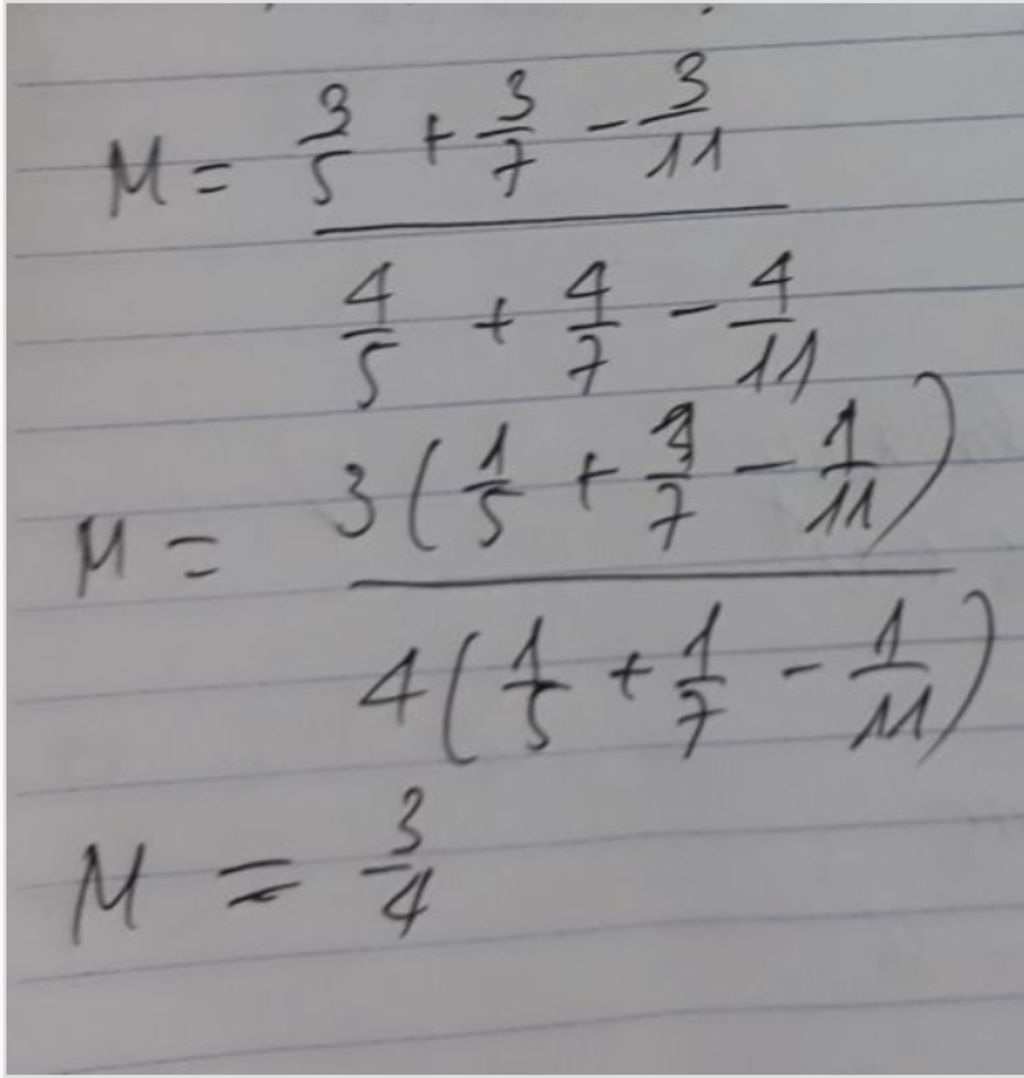 M = (3/5 + 3/7 - 3/11) / (4/5 + 4/7 - 4/11)
M = 3(1/5 + 1/7 - 1/11) / 4(1/5 + 1/7 - 1/11)
M = 3/4